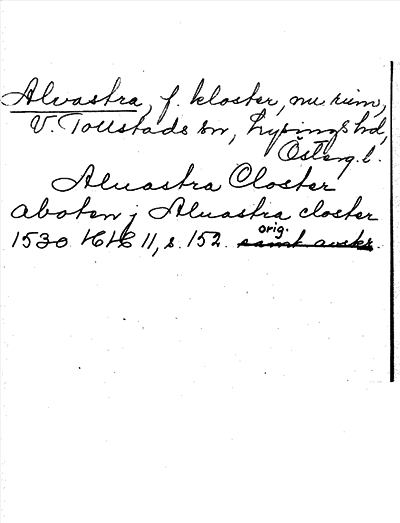 Alvastra, f. kloster, nu ruin,
V. Tollstads sn, Lysings hd,
Österg. l.
Aluastra Closter
aboten j Aluastra closter
1530 HH 11, s. 152. orig. samt avskr.